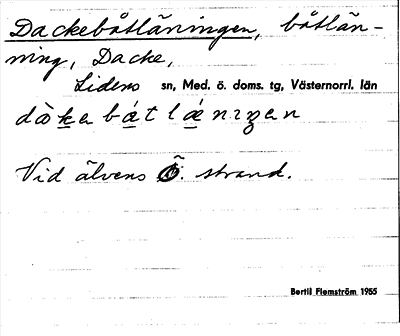 Dackebåtläningen, båtlän-
ning, Dacke,
Lidens sn, Med. ö. doms. tg, Västernorrl. län
dàka bátlǽnıŋen
Vid älvens Ö. strand.
Bertil Flemström 1955